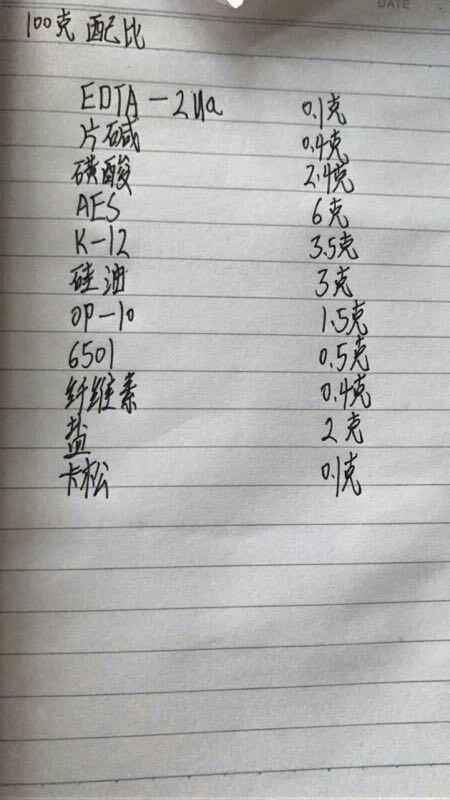 DATE
100克 配比
EDTA-2Na 0.1克
片碱 0.4克
磺酸 2.4克
AES 6克
K-12 3.5克
硅油 3克
OP-10 1.5克
6501 0.5克
纤维素 0.4克
盐 2克
卡松 0.1克